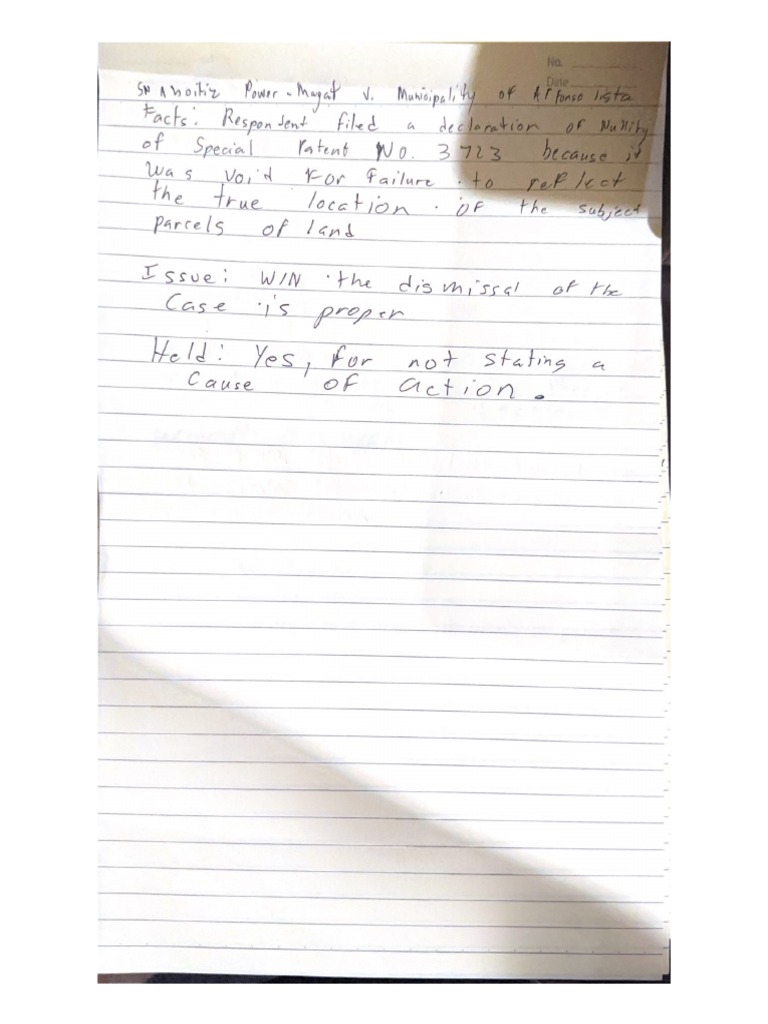 No.
Date
SN Aboitiz Power-Magat v. Municipality of Alfonso Lista
Facts: Respondent filed a declaration of Nullity
of Special Patent NO. 3723 because it
was void for failure to reflect
the true location of the subject
parcels of land
Issue: W/N the dismissal of the
Case is proper
Held: Yes, for not stating a
cause of action.